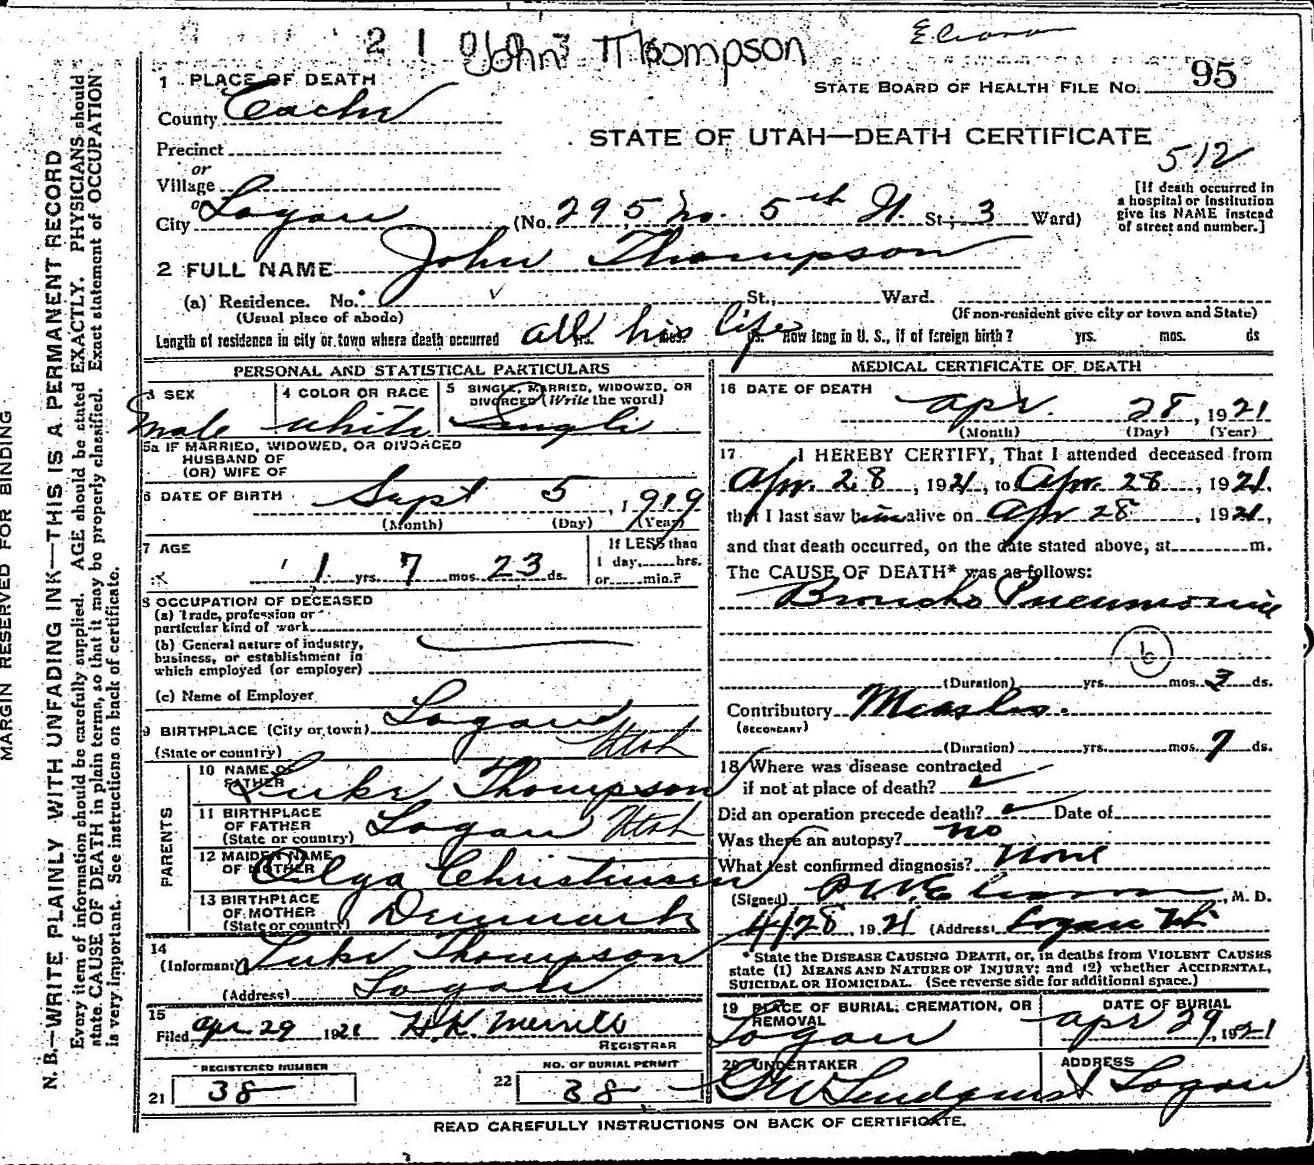 John Thompson
1 PLACE OF DEATH
STATE BOARD OF HEALTH FILE NO. 95
County Cache
STATE OF UTAH—DEATH CERTIFICATE
Precinct
512
or
Village
or
City Logan (No. 295 No. 5th W. St; 3 Ward)
[If death occurred in
a hospital or institution
give its NAME instead
of street and number.]
2 FULL NAME John Thompson
(a) Residence. No. St., Ward.
(Usual place of abode) (If non-resident give city or town and State)
Length of residence in city or town where death occurred all his life yrs. mos. ds. How long in U. S., if of foreign birth? yrs. mos. ds
PERSONAL AND STATISTICAL PARTICULARS
3 SEX Male
4 COLOR OR RACE White
5 SINGLE, MARRIED, WIDOWED, OR
DIVORCED (Write the word)
Single
5a IF MARRIED, WIDOWED, OR DIVORCED
HUSBAND OF
(OR) WIFE OF
6 DATE OF BIRTH Sept 5, 1919
(Month) (Day) (Year)
7 AGE
1 yrs. 7 mos. 23 ds.
If LESS than
1 day, hrs.
or min.?
8 OCCUPATION OF DECEASED
(a) Trade, profession or
particular kind of work
(b) General nature of industry,
business, or establishment in
which employed (or employer)
(c) Name of Employer
9 BIRTHPLACE (City or town) Logan
(State or country) Utah
PARENTS
10 NAME OF
FATHER Luke Thompson
11 BIRTHPLACE
OF FATHER
(State or country) Logan Utah
12 MAIDEN NAME
OF MOTHER Olga Christensen
13 BIRTHPLACE
OF MOTHER
(State or country) Denmark
14
(Informant) Luke Thompson
(Address) Logan
15
Filed Apr. 29 1921 H.K. Merrill
REGISTRAR
REGISTERED NUMBER
21 38
NO. OF BURIAL PERMIT
22 38
MEDICAL CERTIFICATE OF DEATH
16 DATE OF DEATH Apr. 28, 1921
(Month) (Day) (Year)
17 I HEREBY CERTIFY, That I attended deceased from
Apr. 28, 1921, to Apr. 28, 1921,
that I last saw him alive on Apr 28, 1921,
and that death occurred, on the date stated above, at m.
The CAUSE OF DEATH* was as follows:
Broncho Pneumonia
6
(Duration) yrs. mos. 3 ds.
Contributory Measles.
(SECONDARY)
(Duration) yrs. mos. 7 ds.
18 Where was disease contracted
if not at place of death?
Did an operation precede death? Date of
Was there an autopsy? no
What test confirmed diagnosis? None
(Signed) M. D.
4/28, 1921 (Address) Logan Ut.
*State the DISEASE CAUSING DEATH, or, in deaths from VIOLENT CAUSES
state (1) MEANS AND NATURE OF INJURY; and (2) whether ACCIDENTAL,
SUICIDAL OR HOMICIDAL. (See reverse side for additional space.)
19 PLACE OF BURIAL, CREMATION, OR
REMOVAL
Logan
DATE OF BURIAL
Apr 29, 1921
20 UNDERTAKER
G W Lindquist
ADDRESS
Logan
READ CAREFULLY INSTRUCTIONS ON BACK OF CERTIFICATE.
MARGIN RESERVED FOR BINDING
N. B.—WRITE PLAINLY WITH UNFADING INK—THIS IS A PERMANENT RECORD
Every item of information should be carefully supplied. AGE should be stated EXACTLY. PHYSICIANS should
state CAUSE OF DEATH in plain terms, so that it may be properly classified. Exact statement of OCCUPATION
is very important. See instructions on back of certificate.